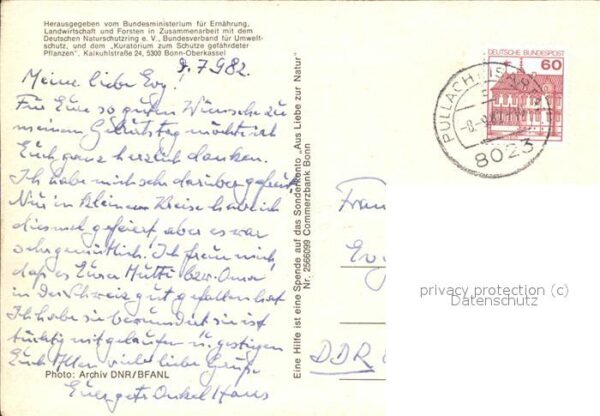 Herausgegeben vom Bundesministerium für Ernährung,
Landwirtschaft und Forsten in Zusammenarbeit mit dem
Deutschen Naturschutzring e. V., Bundesverband für Umwelt-
schutz, und dem „Kuratorium zum Schutze gefährdeter
Pflanzen". Kalkuhlstraße 24, 5300 Bonn-Oberkassel
9.7.982.
Meine liebe Evy!
Für Eure so guten Wünsche zu
meinem Geburtstag möcht ich
Euch ganz herzlich danken.
Ich habe mich sehr darüber gefreut,
Nur in kleinem Kreise hab ich
diesmal gefeiert, aber es war
sehr gemütlich. Ich freue mich,
daß es Eurer Mutti bzw. Oma
in der Schweiz gut gefallen hat
Ich habe sie bewundert sie ist
tüchtig mitgelaufen u. gestiegen
Euch Allen viele liebe Grüße
Photo: Archiv DNR/BFANL
Onkel Hans
Eine Hilfe ist eine Spende auf das Sonderkonto „Aus Liebe zur Natur"
Nr. 2566099 Commerzbank Bonn
DEUTSCHE BUNDESPOST
60
PULLACH i ISARTAL
8023
Evy
DDR
privacy protection (c)
Datenschutz